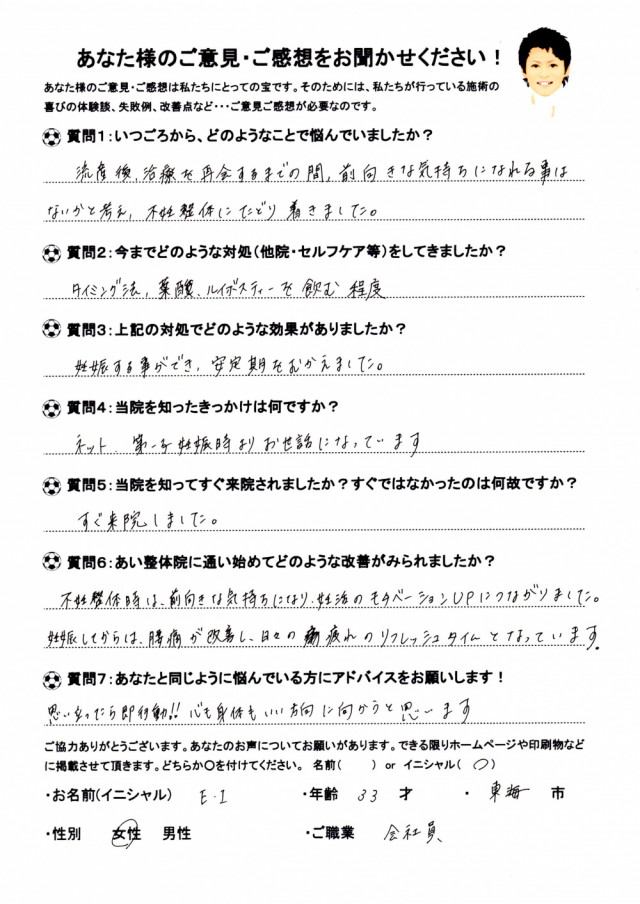 あなた様のご意見・ご感想をお聞かせください！
あなた様のご意見・ご感想は私たちにとっての宝です。そのためには、私たちが行っている施術の
喜びの体験談、失敗例、改善点など・・・ご意見ご感想が必要なのです。
質問1：いつごろから、どのようなことで悩んでいましたか？
流産後、治療を再会するまでの間、前向きな気持ちになれる事は
ないかと考え、不妊整体にたどり着きました。
質問2：今までどのような対処（他院・セルフケア等）をしてきましたか？
タイミング法、葉酸、ルイボスティーを飲む程度
質問3：上記の対処でどのような効果がありましたか？
妊娠する事ができ、安定期をむかえました。
質問4：当院を知ったきっかけは何ですか？
ネット、第一子妊娠時よりお世話になっています
質問5：当院を知ってすぐ来院されましたか？すぐではなかったのは何故ですか？
すぐ来院しました。
質問6：あい整体院に通い始めてどのような改善がみられましたか？
不妊整体時は、前向きな気持ちになり、妊活のモチベーションUPにつながりました。
妊娠してからは、腰痛が改善し、日々の疲れのリフレッシュタイムとなっています。
質問7：あなたと同じように悩んでいる方にアドバイスをお願いします！
思い立ったら即行動!! 心も身体もいい方向に向かうと思います
ご協力ありがとうございます。あなたのお声についてお願いがあります。できる限りホームページや印刷物など
に掲載させて頂きます。どちらか〇を付けてください。 名前（　　） or イニシャル（ 〇 ）
・お名前（イニシャル） E・I ・年齢 33 才 ・ 東海 市
・性別 女性 男性 ・ご職業 会社員